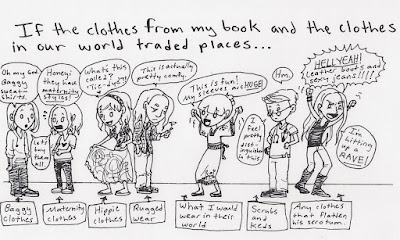 If the clothes from my book and the clothes
in our world traded places...
Oh my God.
Baggy
sweat-
shirts.
Let's
buy
them
all!
Honey!
they have
maternity
styles!
What's this
called?
"Tie-dye"?
This is actually
pretty comfy.
This is fun!
My sleeves are HUGE!
Hm.
I feel
pretty
dist-
inguished
in this.
HELLYEAH!
Leather boots and
sexy jeans!!!!
I'm
hitting up
a RAVE!
Baggy
clothes
Maternity
clothes
Hippie
clothes
Rugged
wear
What I would
wear in their
world
Scrubs
and
Keds
Any clothes
that flatten
his scrotum.